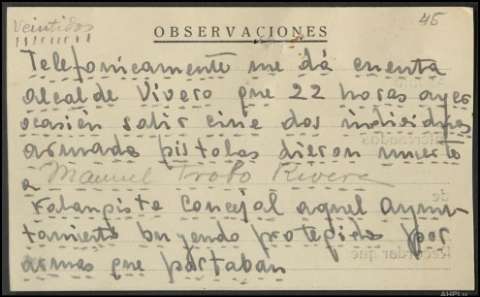 45
Veintidos
OBSERVACIONES
Telefonicamente me dá cuenta
alcalde Vivero que 22 horas ayer
ocasión salir cine dos individuos
armado pistolas dieron muerte
a Manuel Trobo Rivera
Falangista Concejal aquel Ayun-
tamiento huyendo protegidos por
armas que portaban